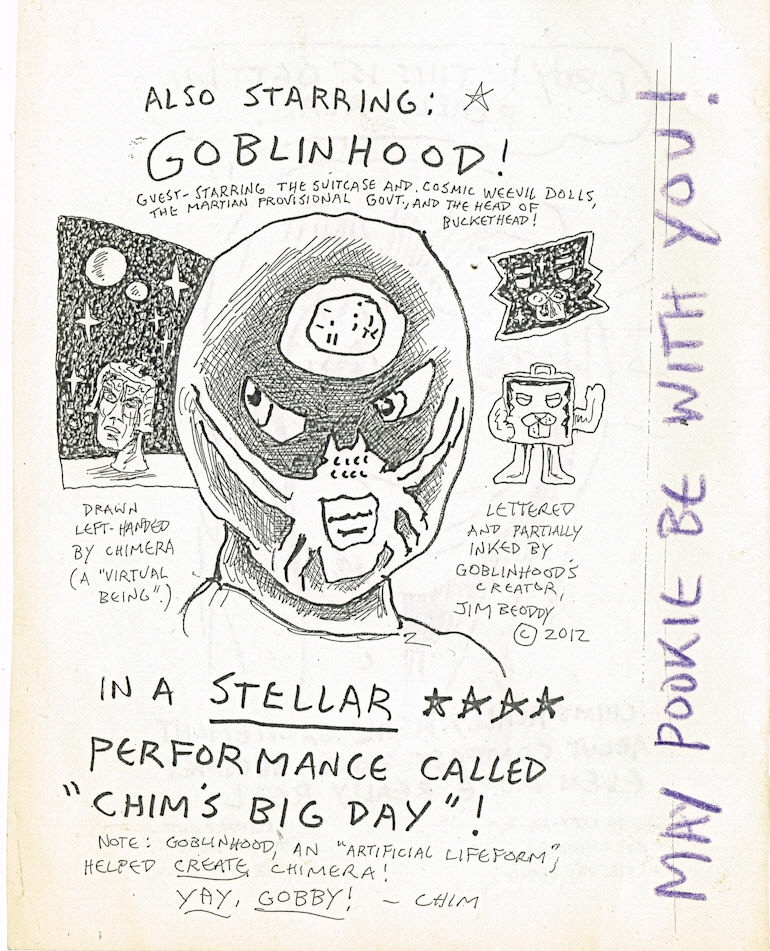 ALSO STARRING: ☆
GOBLINHOOD!
GUEST-STARRING THE SUITCASE AND COSMIC WEEVIL DOLLS,
THE MARTIAN PROVISIONAL GOVT., AND THE HEAD OF
BUCKETHEAD!
DRAWN
LEFT-HANDED
BY CHIMERA
(A "VIRTUAL
BEING".)
LETTERED
AND PARTIALLY
INKED BY
GOBLINHOOD'S
CREATOR,
JIM BEODDY
© 2012
IN A STELLAR ★★★★
PERFORMANCE CALLED
"CHIM'S BIG DAY"!
NOTE: GOBLINHOOD, AN "ARTIFICIAL LIFEFORM",
HELPED CREATE CHIMERA!
YAY, GOBBY! - CHIM
MAY POOKIE BE WITH YOU!